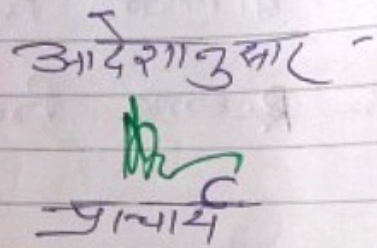 आदेशानुसार -
प्राचार्य